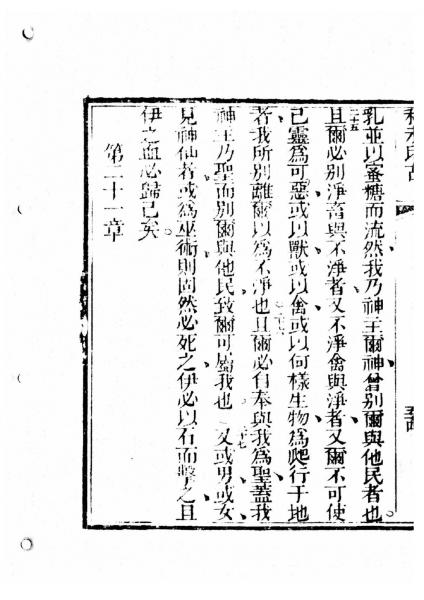 乳並以蜜糖而流然我乃神主爾神曾別爾與他民者也
二十五
且爾必別淨畜與不淨者又不淨禽與淨者又爾不可使
己靈為可惡或以獸或以禽或以何樣生物為爬行于地
者我所別離爾以為不淨也
二十六
且爾必自奉與我為聖蓋我
神主乃聖而別爾與他民致爾可屬我也
二十七
又或男或女
見神仙者或為巫術則固然必死之伊必以石而擊之且
伊之血必歸己矣
第二十一章